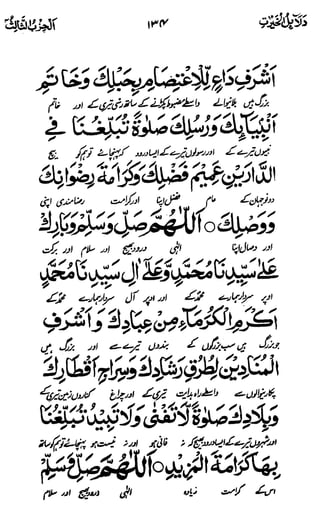 دَلَآئِلُ الْخَيْرَاتِ ۱۳۴ اَلْحِزْبُ الثَّالِثُ
اَشْرَفِ دَاعٍ لِّلْاِعْتِصَامِ بِحَبْلِكَ وَخَاتَمِ
بزرگ ہیں بلانیوالے واسطے مضبوط پکڑنے کے ساتھ رسّی تیری کے اور خاتم
اَنْبِيَآئِكَ وَرُسُلِكَ صَلٰوةً تُبَلِّغُنَا فِے
نبیوں تیرے کے اور رسولوں تیرے کے ایسا درود کہ پہنچائے تو ہم کو بیچ
الدَّارَيْنِ عَمِيْمَ فَضْلِكَ وَكَرَامَةَ رِضْوَانِكَ
دو جہان کے عام فضل اپنا اور کرامت رضامندی اپنی
وَوَصْلِكَ ○ اَللّٰهُمَّ صَلِّ وَسَلِّمْ وَبَارِكْ
اور وصال اپنا الٰہی درود بھیج اور سلام اور برکت
عَلٰى سَيِّدِنَا مُحَمَّدٍ وَّعَلٰٓى اٰلِ سَيِّدِنَا مُحَمَّدٍ
اوپر سردار ہمارے محمدؐ کے اور اوپر آل سردار ہمارے محمدؐ کے
اَكْرَمِ الْكُرَمَآءِ مِنْ عِبَادِكَ وَاَشْرَفِ
جو بزرگ ہیں سب بزرگوں کے بندوں تیرے سے اور بزرگ ہیں
الْمُنَادِيْنَ لِطُرُقِ رَشَادِكَ وَسِرَاجِ اَقْطَارِكَ
پکارنیوالوں سے واسطے راہ ہدایت تیری کے اور چراغ کناروں زمین تیری کے
وَبِلَادِكَ صَلٰوةً لَّا تَفْنٰى وَلَا تَبِيْدُ تُبَلِّغُنَا
اور شہروں تیرے کے ایسا درود بھیج کہ نہ فانی ہو اور نہ نیست ہو پہنچائے تو ہم کو ساتھ
بِهَا كَرَامَةَ الْمَزِيْدِ ○ اَللّٰهُمَّ صَلِّ وَسَلِّمْ
اس کے کرامت زیادہ الٰہی درود بھیج اور سلام